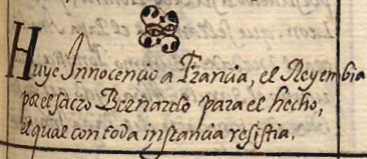 Huye Innocencio a Francia, el Rey embia
por el sacro Bernardo para el hecho,
el qual con toda instancia resistia.